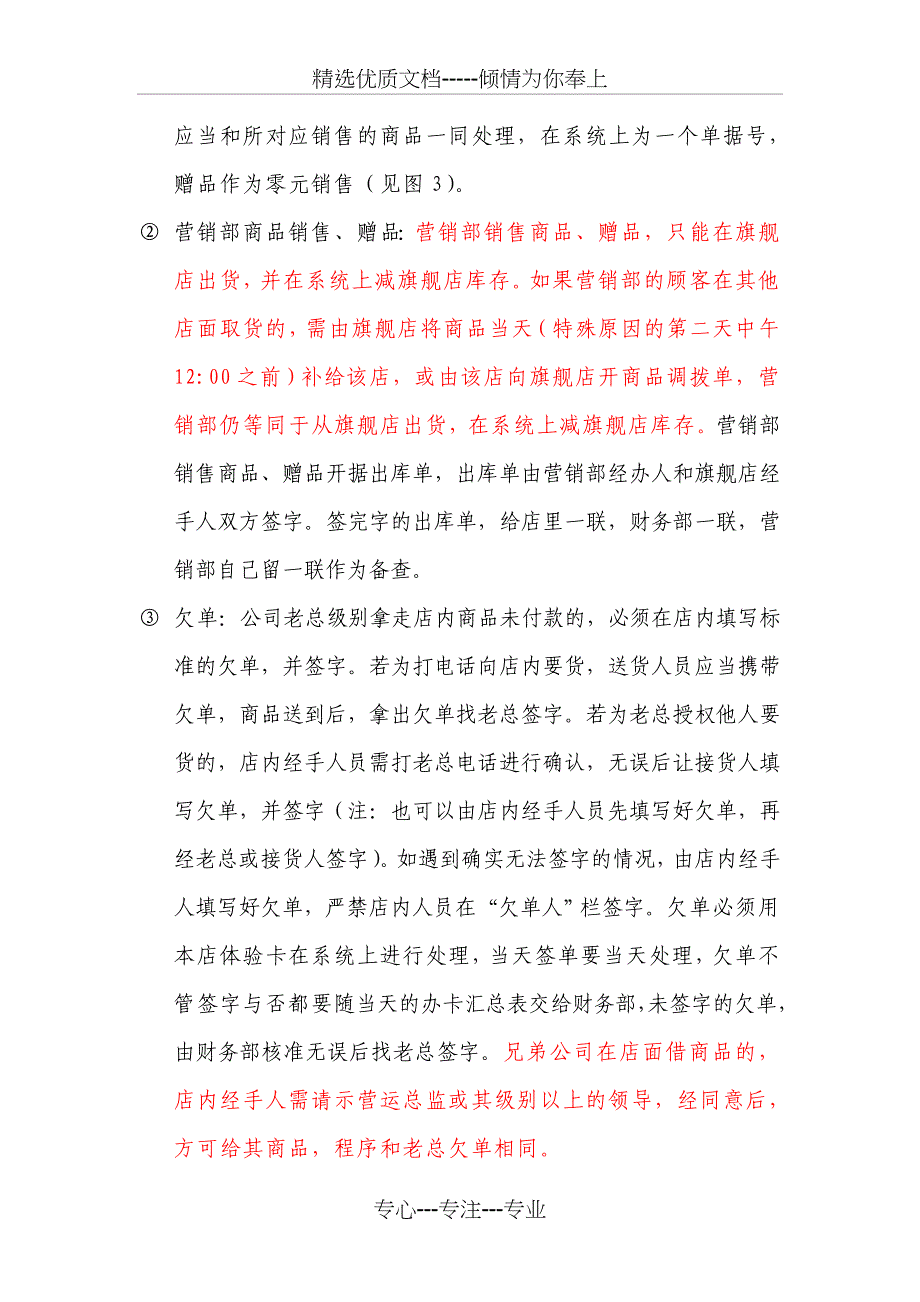 精选优质文档-----倾情为你奉上
应当和所对应销售的商品一同处理，在系统上为一个单据号，
赠品作为零元销售（见图 3）。
② 营销部商品销售、赠品：营销部销售商品、赠品，只能在旗舰
店出货，并在系统上减旗舰店库存。如果营销部的顾客在其他
店面取货的，需由旗舰店将商品当天（特殊原因的第二天中午
12：00 之前）补给该店，或由该店向旗舰店开商品调拨单，营
销部仍等同于从旗舰店出货，在系统上减旗舰店库存。营销部
销售商品、赠品开据出库单，出库单由营销部经办人和旗舰店经
手人双方签字。签完字的出库单，给店里一联，财务部一联，营
销部自己留一联作为备查。
③ 欠单：公司老总级别拿走店内商品未付款的，必须在店内填写标
准的欠单，并签字。若为打电话向店内要货，送货人员应当携带
欠单，商品送到后，拿出欠单找老总签字。若为老总授权他人要
货的，店内经手人员需打老总电话进行确认，无误后让接货人填
写欠单，并签字（注：也可以由店内经手人员先填写好欠单，再
经老总或接货人签字）。如遇到确实无法签字的情况，由店内经手
人填写好欠单，严禁店内人员在 “欠单人” 栏签字。欠单必须用
本店体验卡在系统上进行处理，当天签单要当天处理，欠单不
管签字与否都要随当天的办卡汇总表交给财务部，未签字的欠单，
由财务部核准无误后找老总签字。兄弟公司在店面借商品的，
店内经手人需请示营运总监或其级别以上的领导，经同意后，
方可给其商品，程序和老总欠单相同。
专心---专注---专业